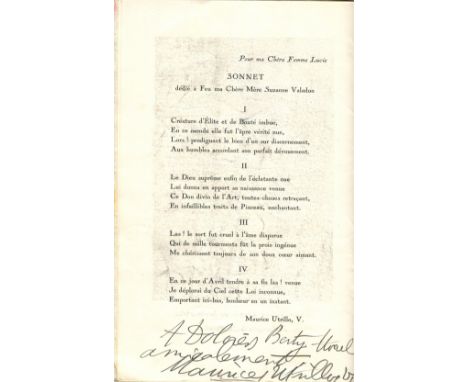 Pour ma Chère Femme Lucie
SONNET
dédié à Feu ma Chère Mère Suzanne Valadon
I
Créature d'Élite et de Bonté imbue,
En ce monde elle fut l'âpre vérité nue,
Lors ! prodiguant le bien d'un sur discernement,
Aux humbles accordant son parfait dévouement.
II
Le Dieu suprême enfin de l'éclatante nue
Lui donna en apport sa naissance venue
Ce Don divin de l'Art, toutes choses retraçant,
En infaillibles traits de Pinceau, enchantant.
III
Las ! le sort fut cruel à l'âme disparue
Qui de mille tourments fût la proie ingénue
Me chérissant toujours de son doux cœur aimant.
IV
En ce jour d'Avril tendre à sa fin las ! venue
Je déplorai du Ciel cette Loi inconnue,
Emportant ici-bas, bonheur en un instant.
Maurice Utrillo, V.
A Dolorès Berty
amicalement
Maurice Utrillo V.